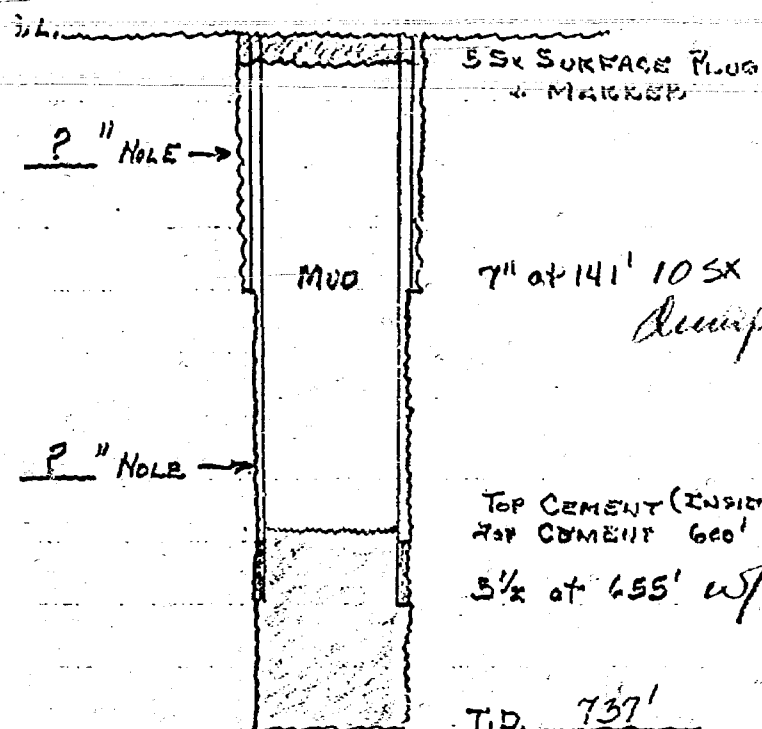 G.L.
5 SX SURFACE PLUG
& MARKER
? " HOLE
MUD
7" at 141' 10 SX
Dump
? " HOLE
TOP CEMENT (INSID
TOP CEMENT 600'
5½ at 655' w/
T.D. 737'